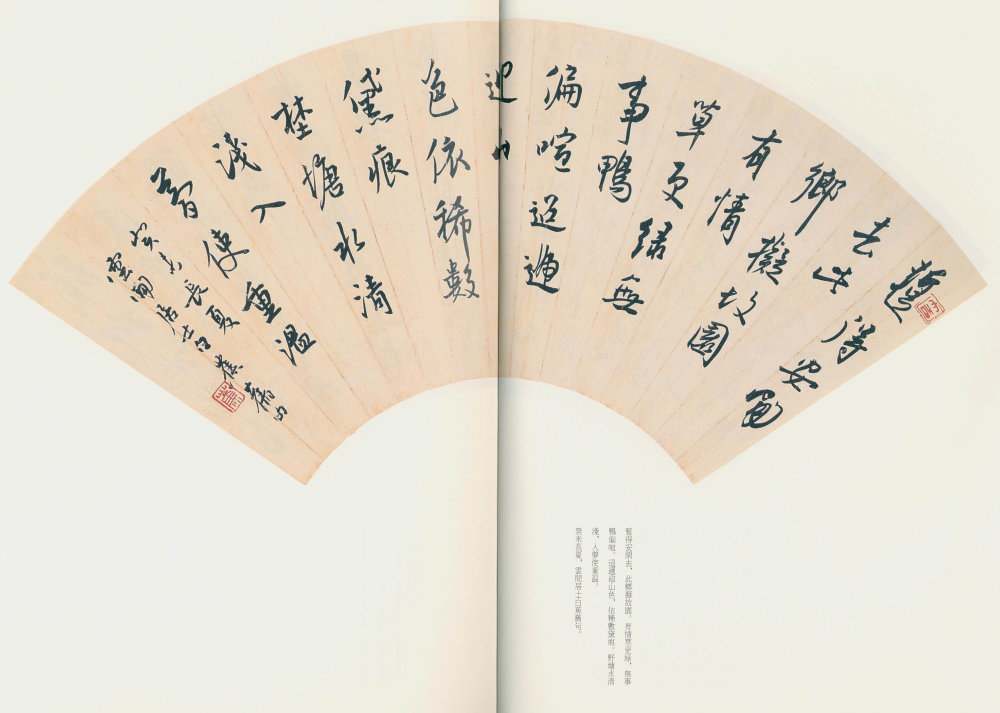 蹔得安閒
去此
鄉擬故園
有情
草更緑無
事鴨
偏喧迢遞
迎山
色依稀數
黛痕
埜塘水清
淺入
夢使重温
癸未長夏
雲間居士白蕉舊句
暫得安閒去，此鄉擬故園。有情草更緑，無事
鴨偏喧。迢遞迎山色，依稀數黛痕。野塘水清
淺，人夢使重温。
癸未長夏，雲間居士白蕉舊句。